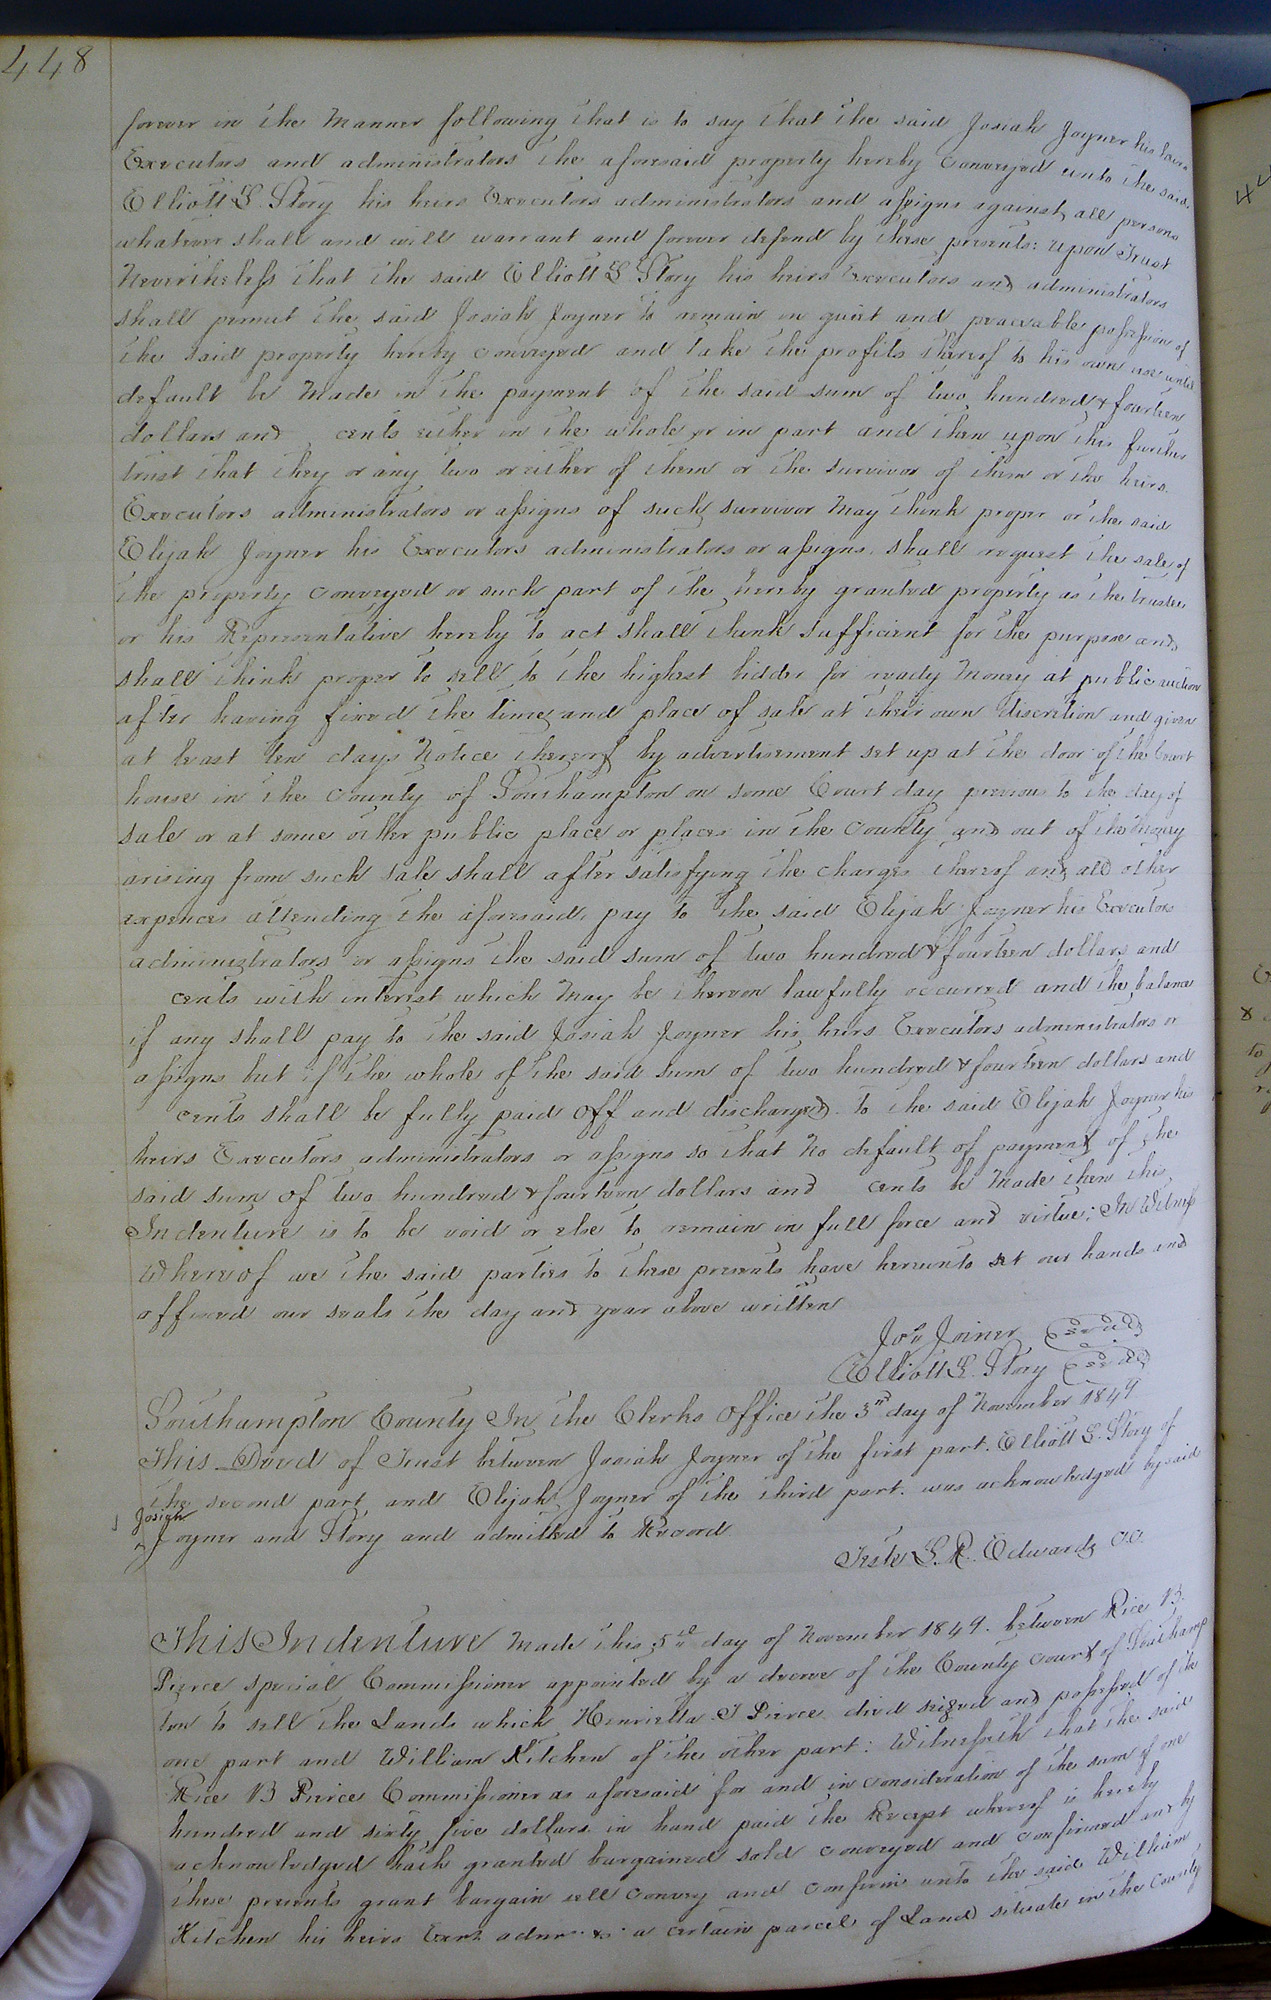 448
forever in the Manner following that is to say that the said Josiah Joyner his heirs
Executors and administrators the aforesaid property hereby Conveyed unto the said
Elliott L. Story his heirs Executors administrators and assigns against all persons
whatever shall and will warrant and forever defend by these presents: upon Trust
Nevertheless that the said Elliott L Story his heirs Executors and administrators
shall permit the said Josiah Joyner to remain in quiet and peaceable possession of
the said property hereby conveyed and take the profits thereof to his own use until
default be Made in the payment of the said sum of two hundred & fourteen
dollars and cents either in the whole or in part and then upon this further
trust that they or any two or either of them or the survivor of them or the heirs
Executors administrators or assigns of such survivor May think proper or the said
Elijah Joyner his Executors administrators or assigns shall request the sale of
the property conveyed or such part of the hereby granted property as the trustee
or his Representative hereby to act shall think sufficient for the purpose and
shall think proper to sell to the highest bidder for ready Money at public auction
after having fixed the time and place of sale at their own discretion and given
at least ten days Notice thereof by advertisement set up at the door of the Court
house in the County of Southampton on some Court day previous to the day of
sale or at some other public place or places in the County and out of the Money
arising from such sale shall after satisfying the charges thereof and all other
expences attending the aforesaid, pay to the said Elijah Joyner his Executors
administrators or assigns the said sum of two hundred & fourteen dollars and
cents with interest which May be thereon lawfully occurred and the balance
if any shall pay to the said Josiah Joyner his heirs Executors administrators or
assigns but if the whole of the said sum of two hundred & fourteen dollars and
cents shall be fully paid off and discharged to the said Elijah Joyner his
heirs Executors administrators or assigns so that No default of payment of the
said sum of two hundred & fourteen dollars and cents be Made then this
Indenture is to be void or else to remain in full force and virtue; In Witness
Whereof we the said parties to these presents have hereunto set our hands and
affixed our seals the day and year above written
Joˢ Joiner (seal)
Elliott L. Story (seal)
Southampton County In the Clerks Office the 3rd day of November 1849
This Deed of Trust between Josiah Joyner of the first part. Elliott L. Story of
the second part and Elijah Joyner of the third part. was acknowledged by said
Josiah
^ Joyner and Story and admitted to Record
Teste L. R. Edwards CC.
This Indenture Made this 5th day of November 1849. between Rice B.
Pierce special Commissioner appointed by a decree of the County Court of Southamp
ton to sell the Lands which Henrietta T Pierce died seized and possessed of the
one part and William Kitchen of the other part: Witnesseth that the said
Rice B Pierce Commissioner as aforesaid for and in consideration of the sum of one
hundred and sixty five dollars in hand paid the Recept whereof is hereby
acknowledged hath granted bargained sold conveyed and confirmed and by
these presents grant bargain sell convey and confirm unto the said William
Kitchen his heirs Exrs admrs &c a certain parcel of Land situate in the County